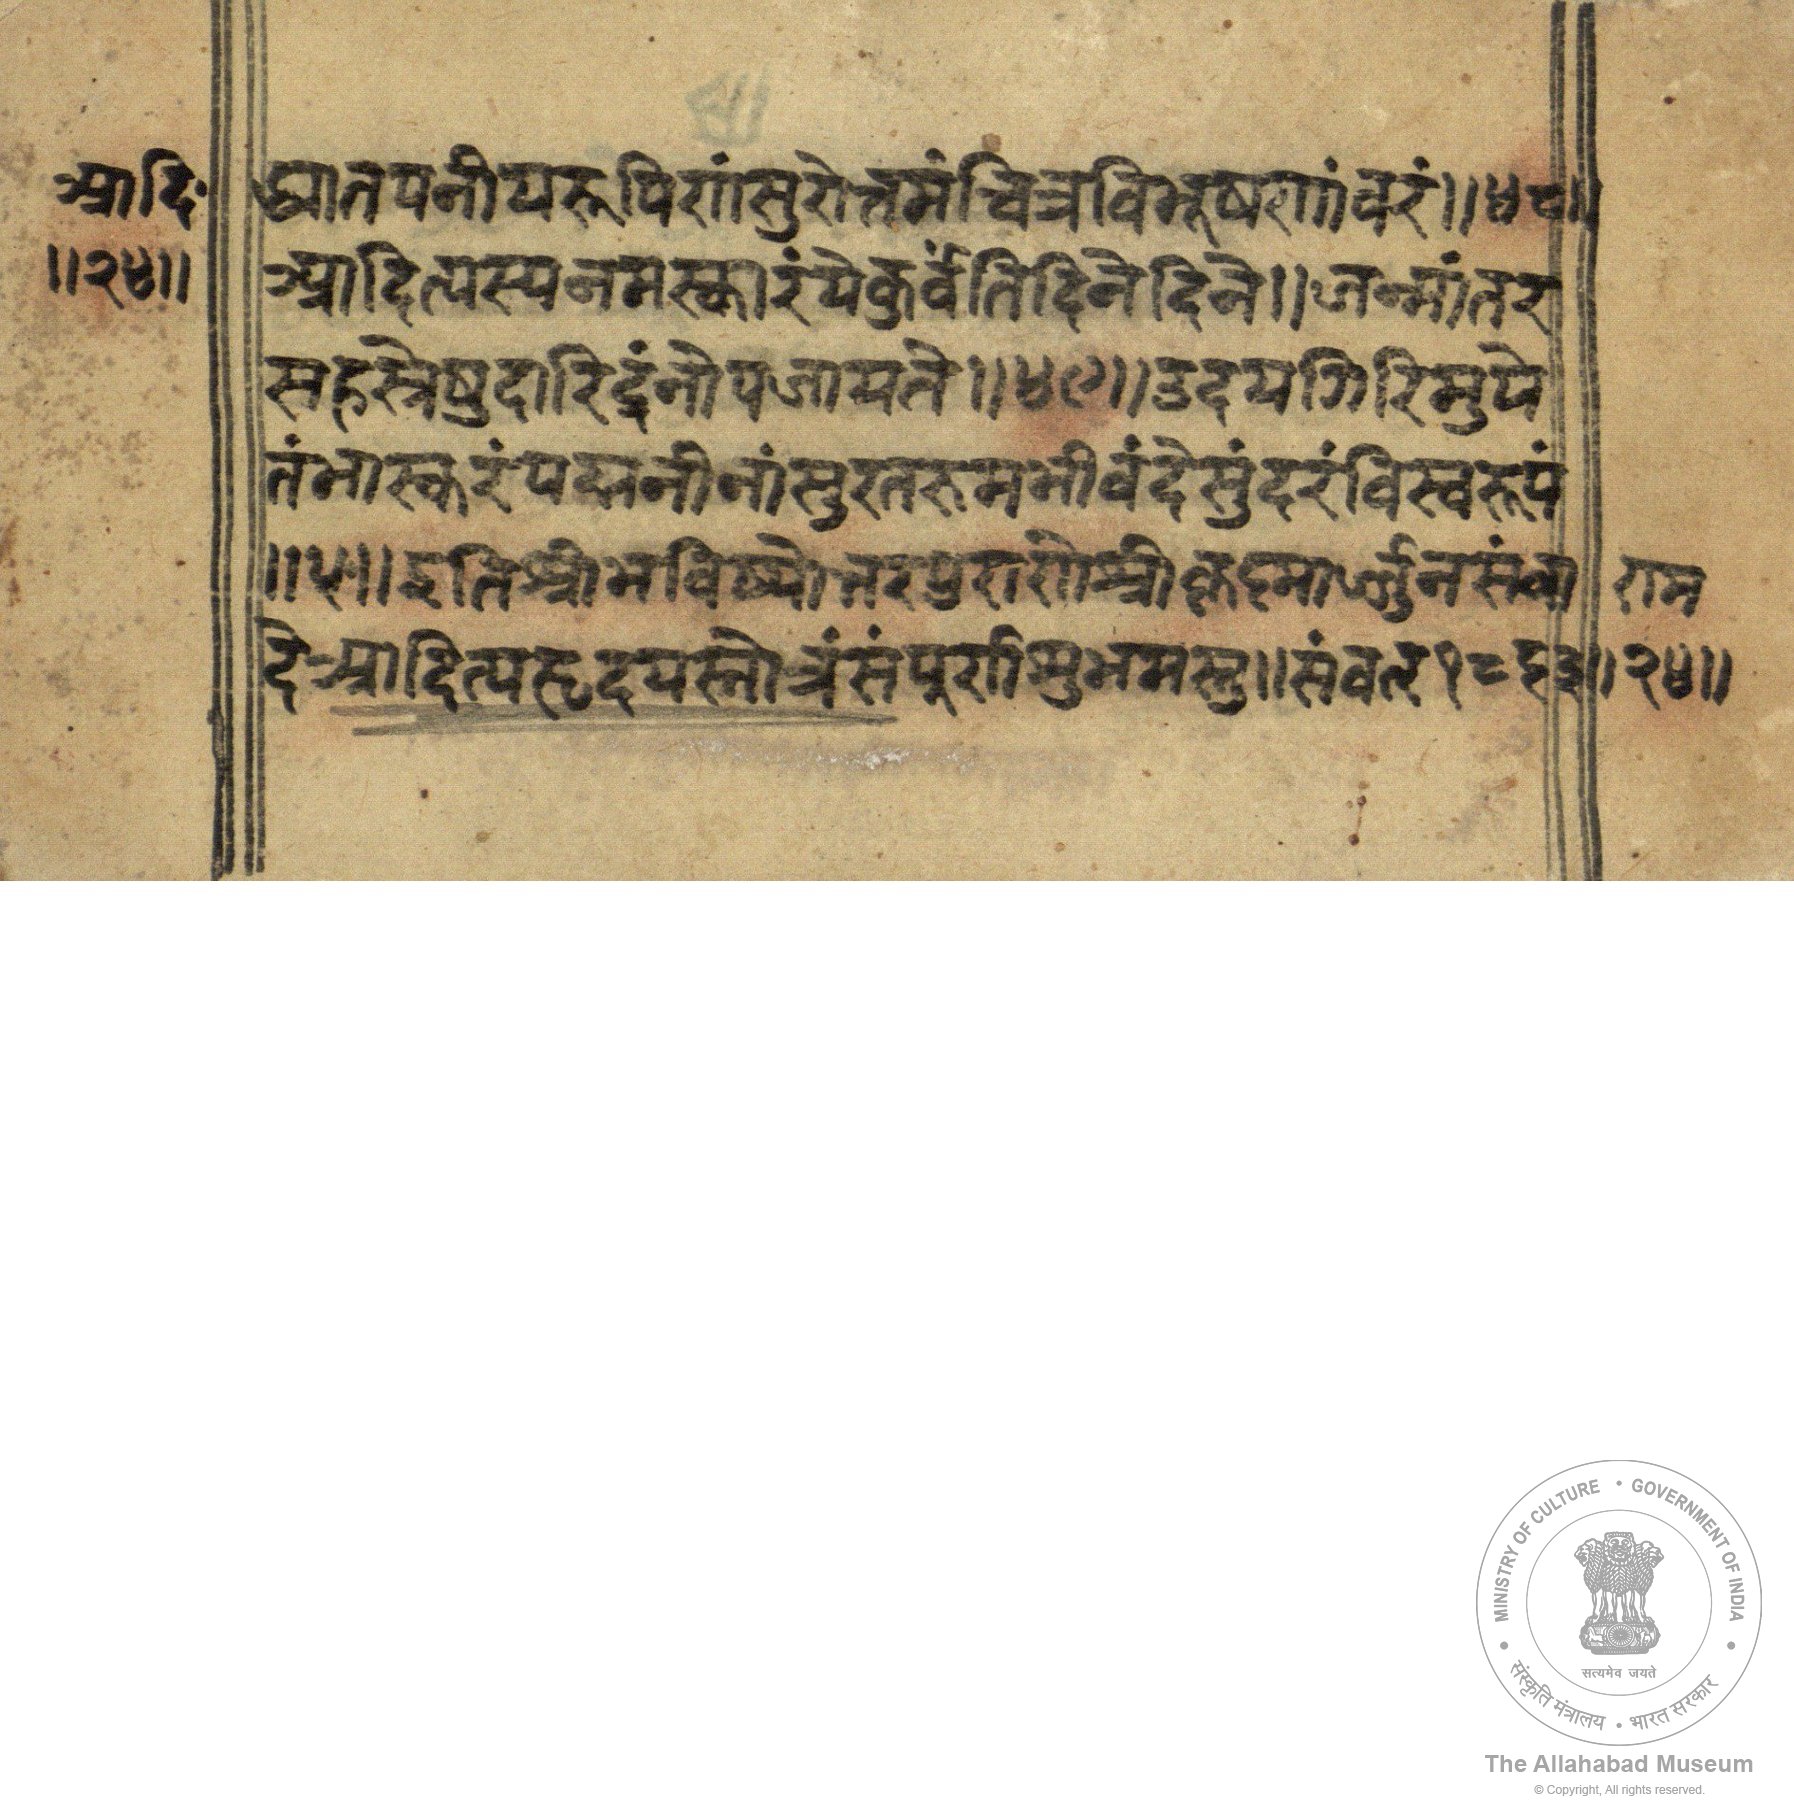 आदि॰
॥२४॥
द्यातपनीयरूपिणंसुरोत्तमंचित्रविभूषणंवरं॥४८॥
आदित्यस्यनमस्कारंयेकुर्वंतिदिनेदिने॥जन्मांतर
सहस्त्रेषुदारिद्रंनोपजायते॥४९॥उदयगिरिमुपे
तंभास्करंपद्मनीनांसुरतरुमभीवंदेसुंदरंविस्वरूपं
॥५॥इतिश्रीभविष्योत्तरपुराणेश्रीकृष्मार्ज्जुनसंवा
राम
देआदित्यहृदयस्तोत्रंसंपूर्णंसुभमस्तु॥संवत१८६३॥
२४॥
MINISTRY OF CULTURE • GOVERNMENT OF INDIA
सत्यमेव जयते
संस्कृति मंत्रालय • भारत सरकार
The Allahabad Museum
© Copyright, All rights reserved.